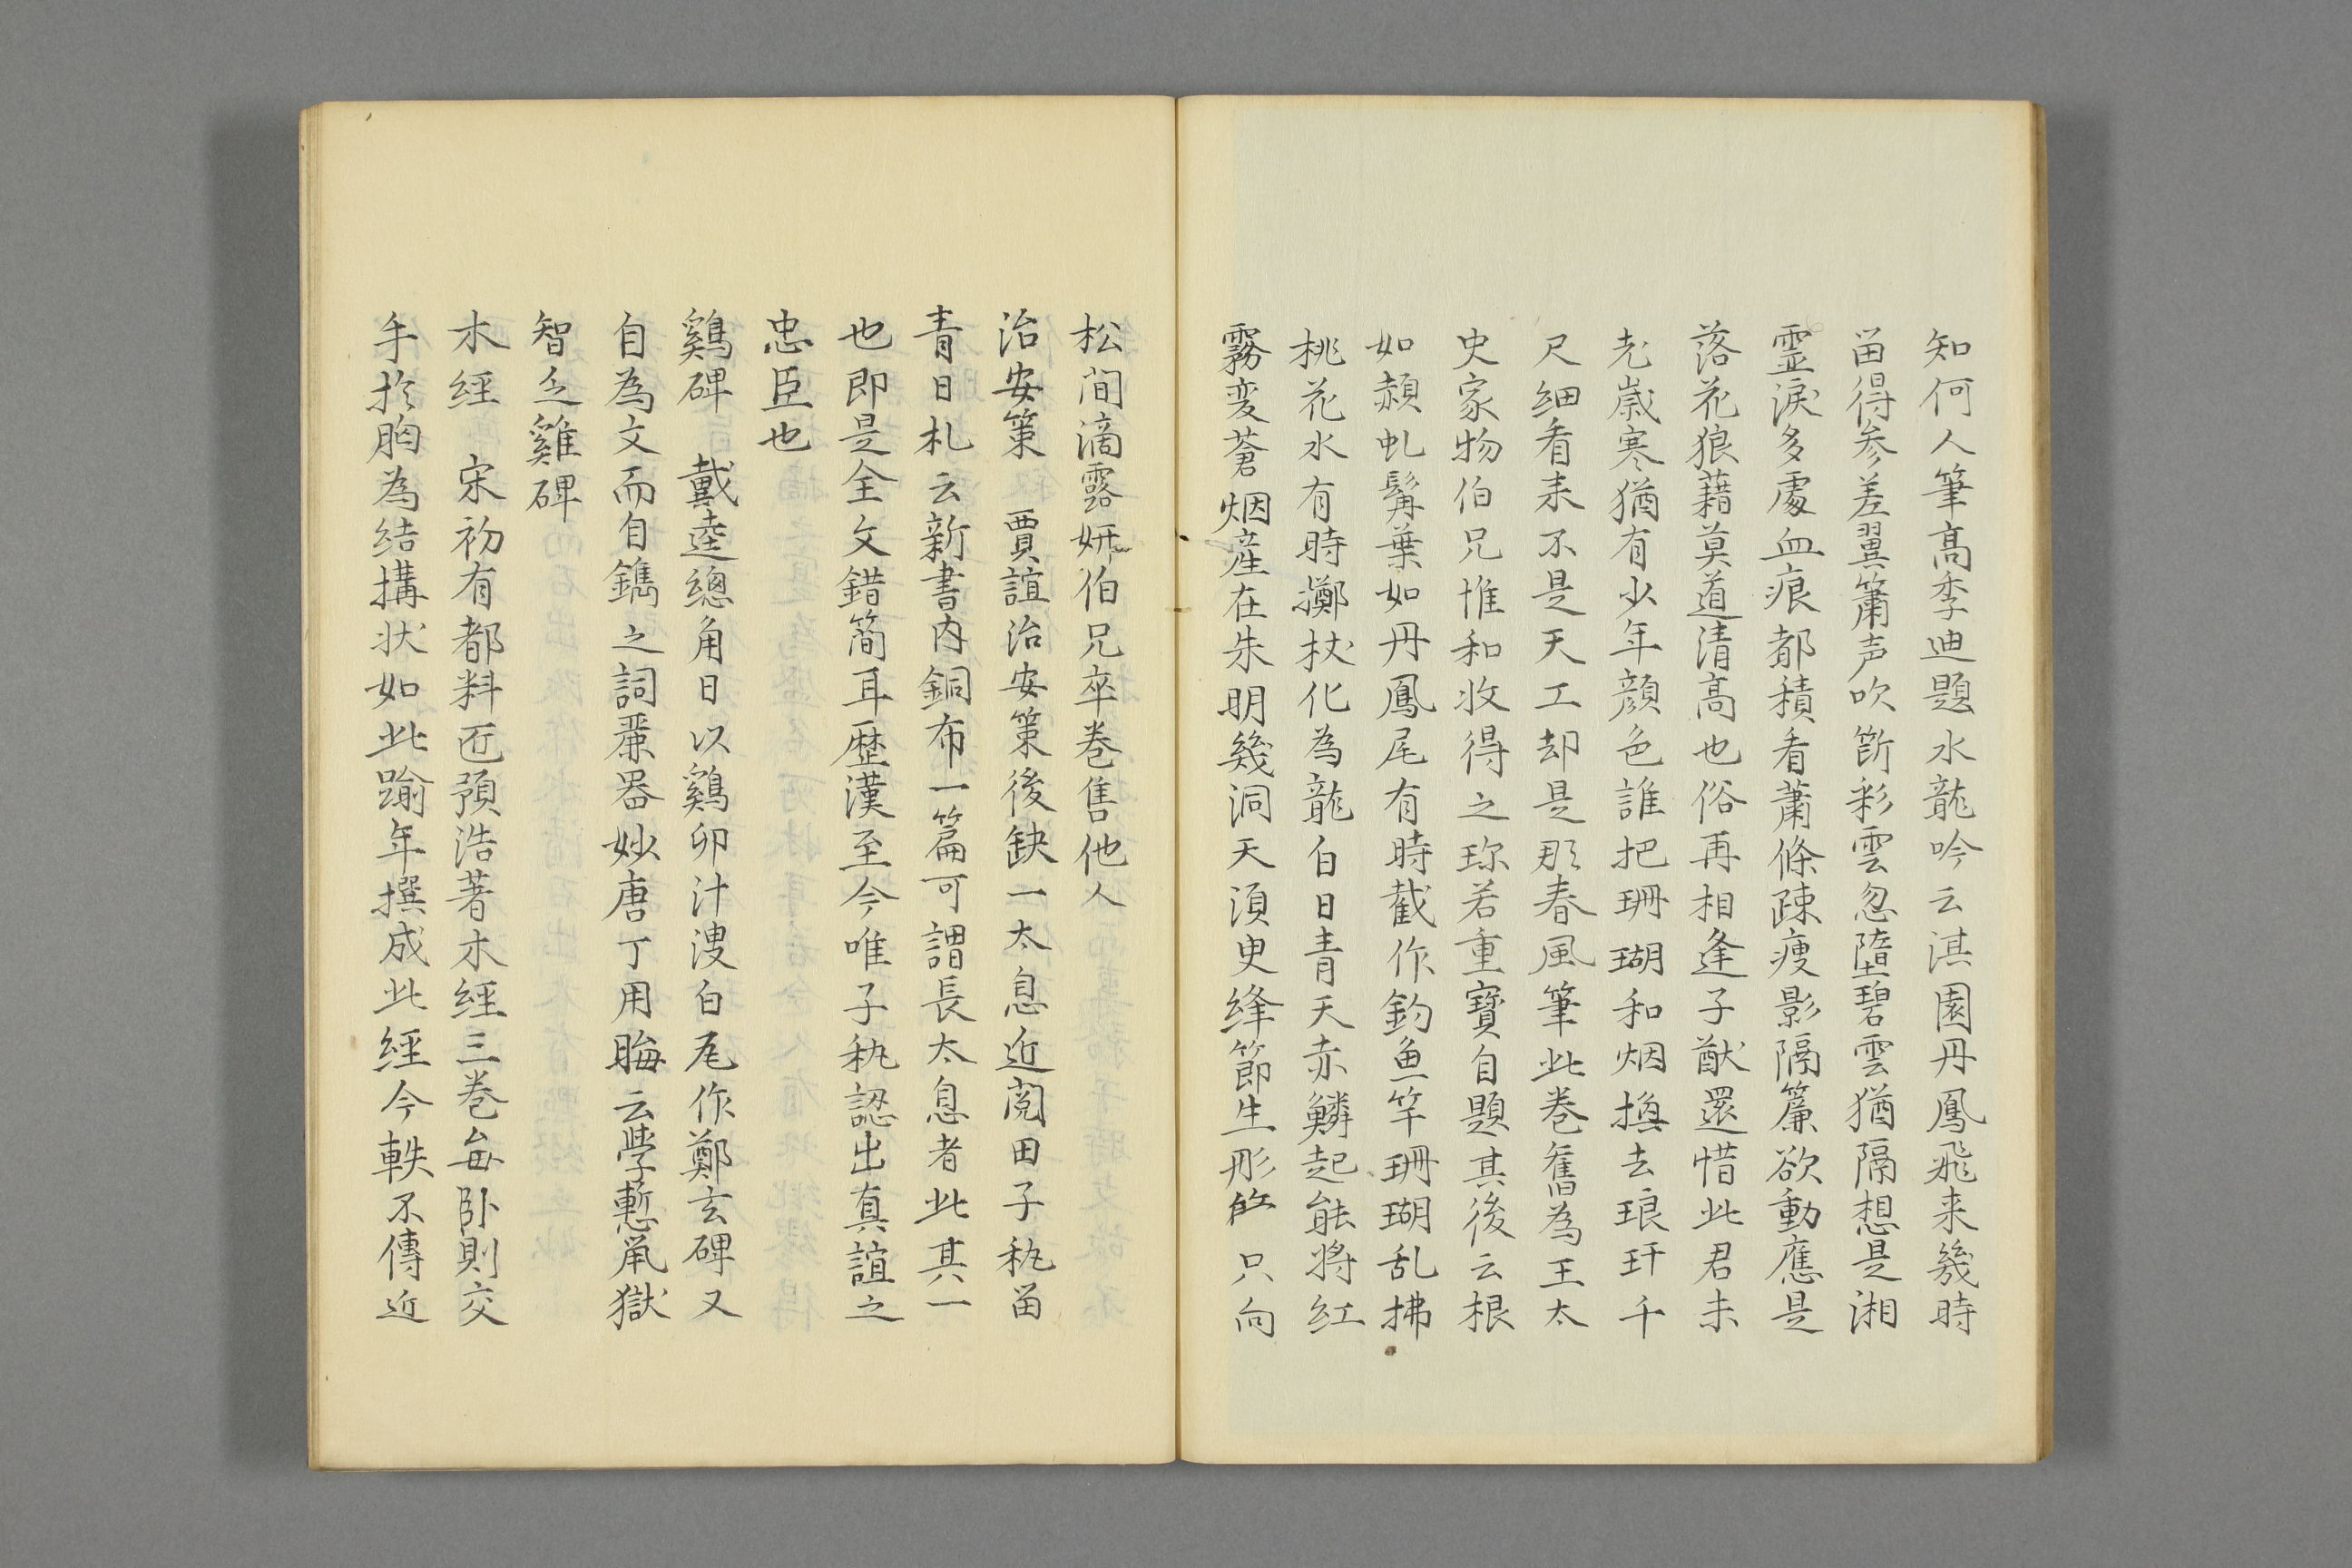 知何人筆高季迪題水龍吟云淇園丹鳳飛来幾時
畄得参差翼簫声吹断彩雲忽墮碧雲猶隔想是湘
霊淚多處血痕都積看蕭條疎痩影隔簾欲動應是
落花狼藉莫道清高也俗再相逢子猷還惜此君未
老嵗寒猶有少年顔色誰把珊瑚和烟換去琅玕千
尺細看来不是天工却是那春風筆此巻舊為王太
史家物伯兄惟和收得之珎若重寶自題其後云根
如頳虬髯葉如丹鳳尾有時截作釣魚竿珊瑚乱拂
桃花水有時擲杖化為龍白日青天赤鱗起能將紅
霧変蒼烟産在朱明幾洞天須臾絳節生彤管只向
松間滴露妍伯兄卒巻售他人
治安策　賈誼治安策後缺一太息近閲田子秇畄
青日札云新書内銅布一篇可謂長太息者此其一
也即是全文錯簡耳歴漢至今唯子秇認出真誼之
忠臣也
鷄碑　戴逵總角日以鷄卵汁溲白尾作鄭玄碑又
自為文而自鐫之詞麗器妙唐丁用晦云學慙鼠獄
智乏雞碑
木經　宋初有都料匠預浩著木經三巻毎卧則交
手於胸為結搆状如此踰年撰成此經今軼不傳近